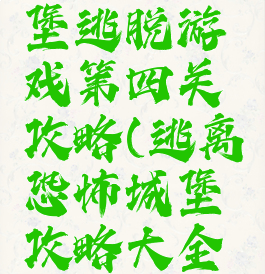 堡逃脱游
戏第四关
攻略(逃离
恐怖城堡
攻略大全